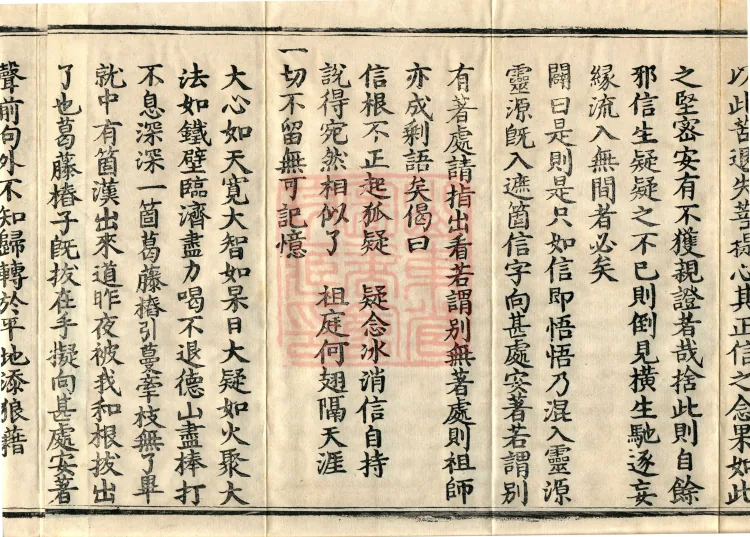 以此苦退失菩提心其正信之念果如此
之堅密安有不獲親證者哉捨此則自餘
邪信生疑疑之不已則倒見橫生馳逐妄
緣流入無間者必矣
闢曰是則是只如信即悟悟乃混入靈源
靈源既入遮箇信字向甚處安著若謂別
有著處請指出看若謂別無著處則祖師
亦成剩語矣偈曰
信根不正起狐疑 疑念冰消信自持
說得宛然相似了 祖庭何翅隔天涯
一切不留無可記憶
大心如天寬大智如杲日大疑如火聚大
法如鐵壁臨濟盡力喝不退德山盡棒打
不息深深一箇葛藤樁引蔓牽枝無了畢
就中有箇漢出來道昨夜被我和根拔出
了也葛藤樁子既拔在手擬向甚處安著
聲前句外不知歸轉於平地添狼藉